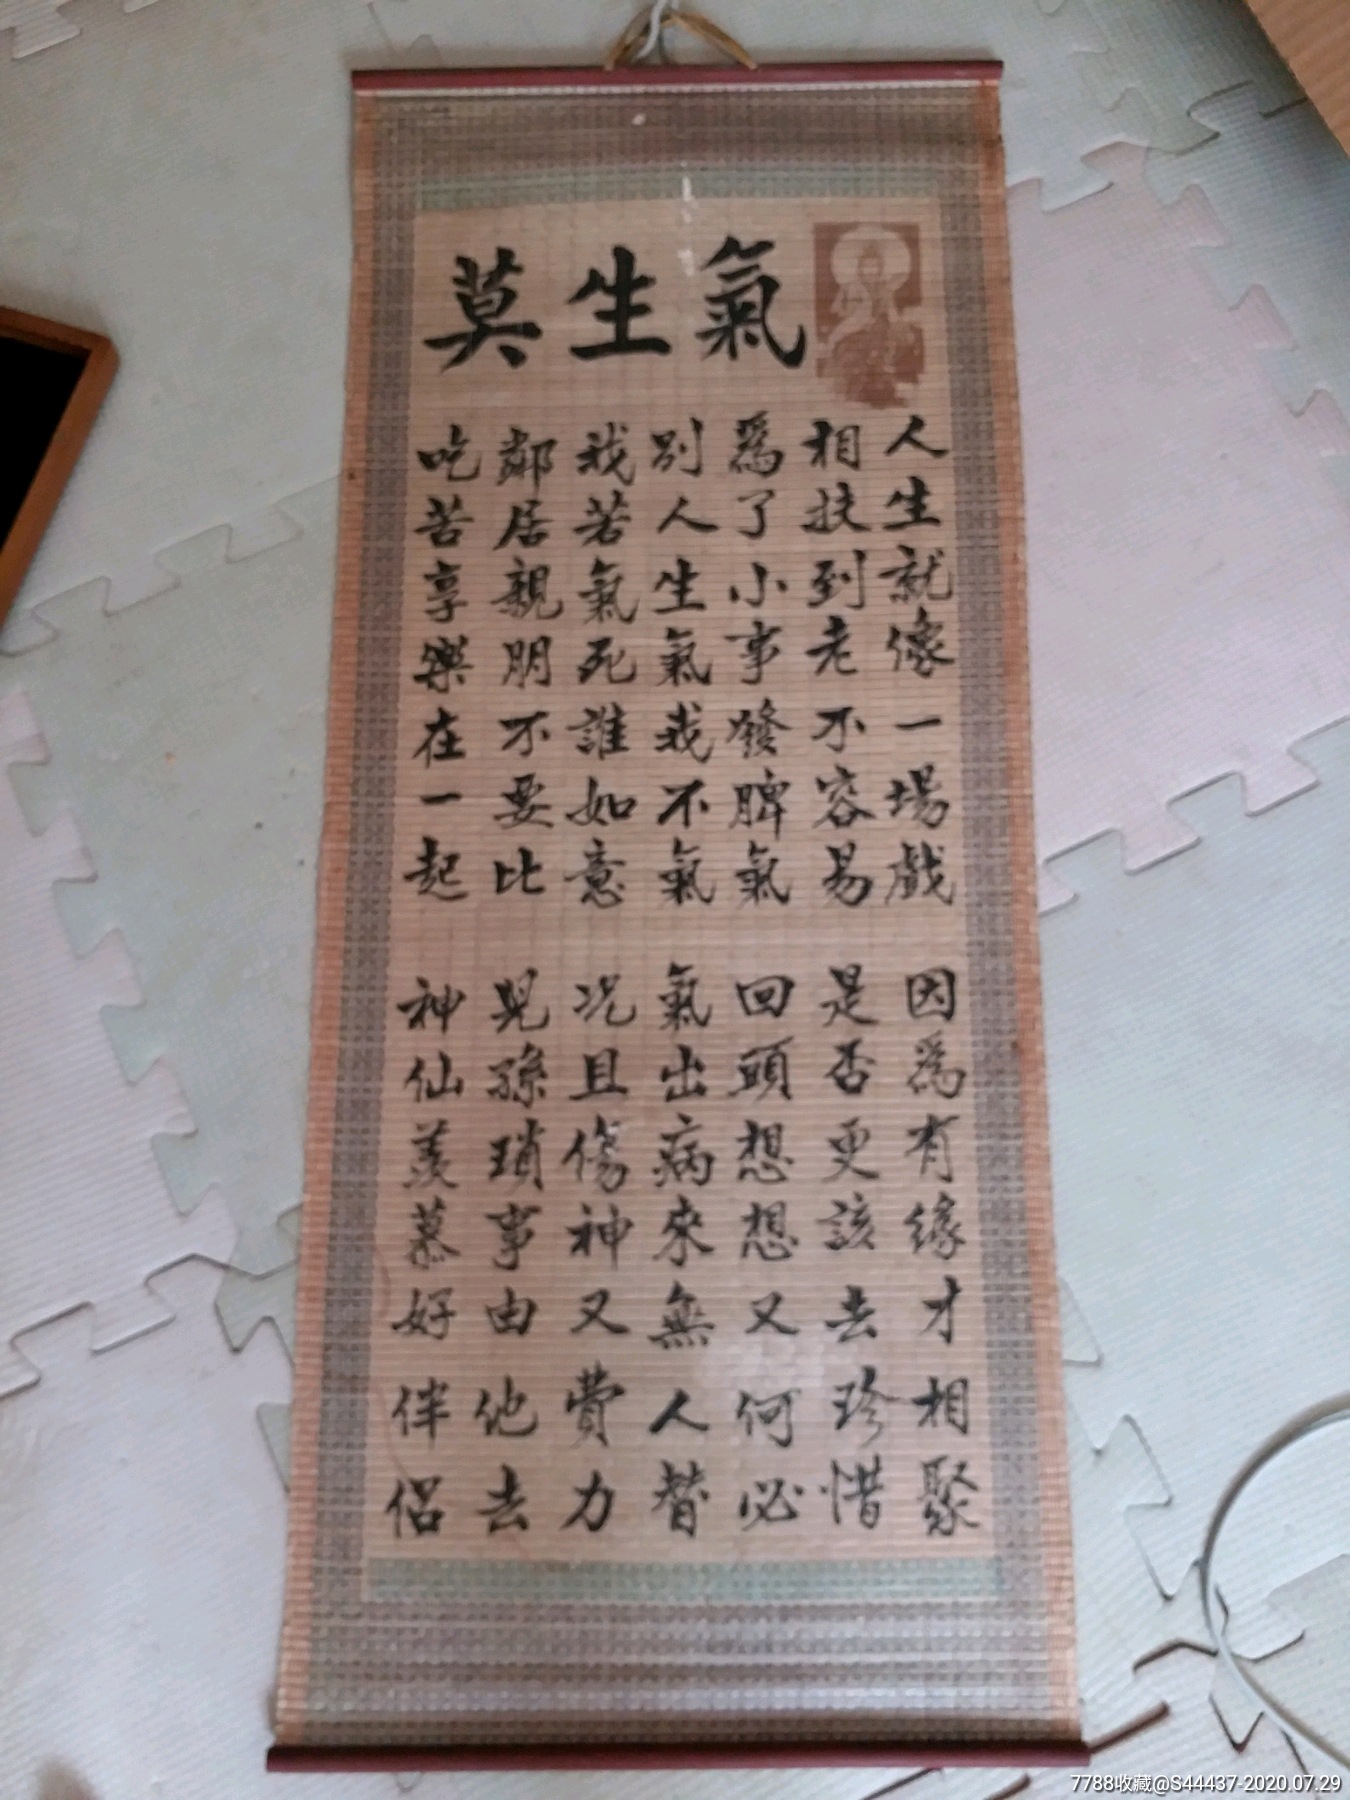 莫生氣
人生就像一場戲
因爲有緣才相聚
相扶到老不容易
是否更該去珍惜
爲了小事發脾氣
回頭想想又何必
別人生氣我不氣
氣出病來無人替
我若氣死誰如意
况且傷神又費力
鄰居親朋不要比
兒孫瑣事由他去
吃苦享樂在一起
神仙羡慕好伴侶
7788收藏@S44437-2020.07.29